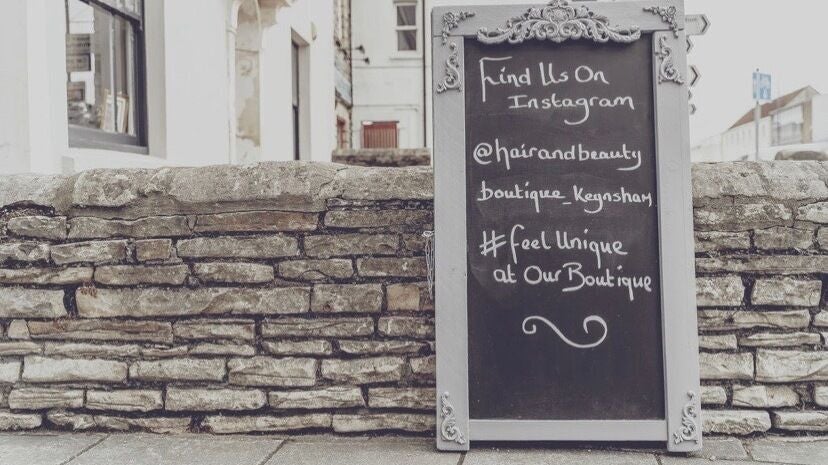 Find Us On
Instagram
@hairandbeauty
boutique_Keynsham
#feel Unique
at Our Boutique